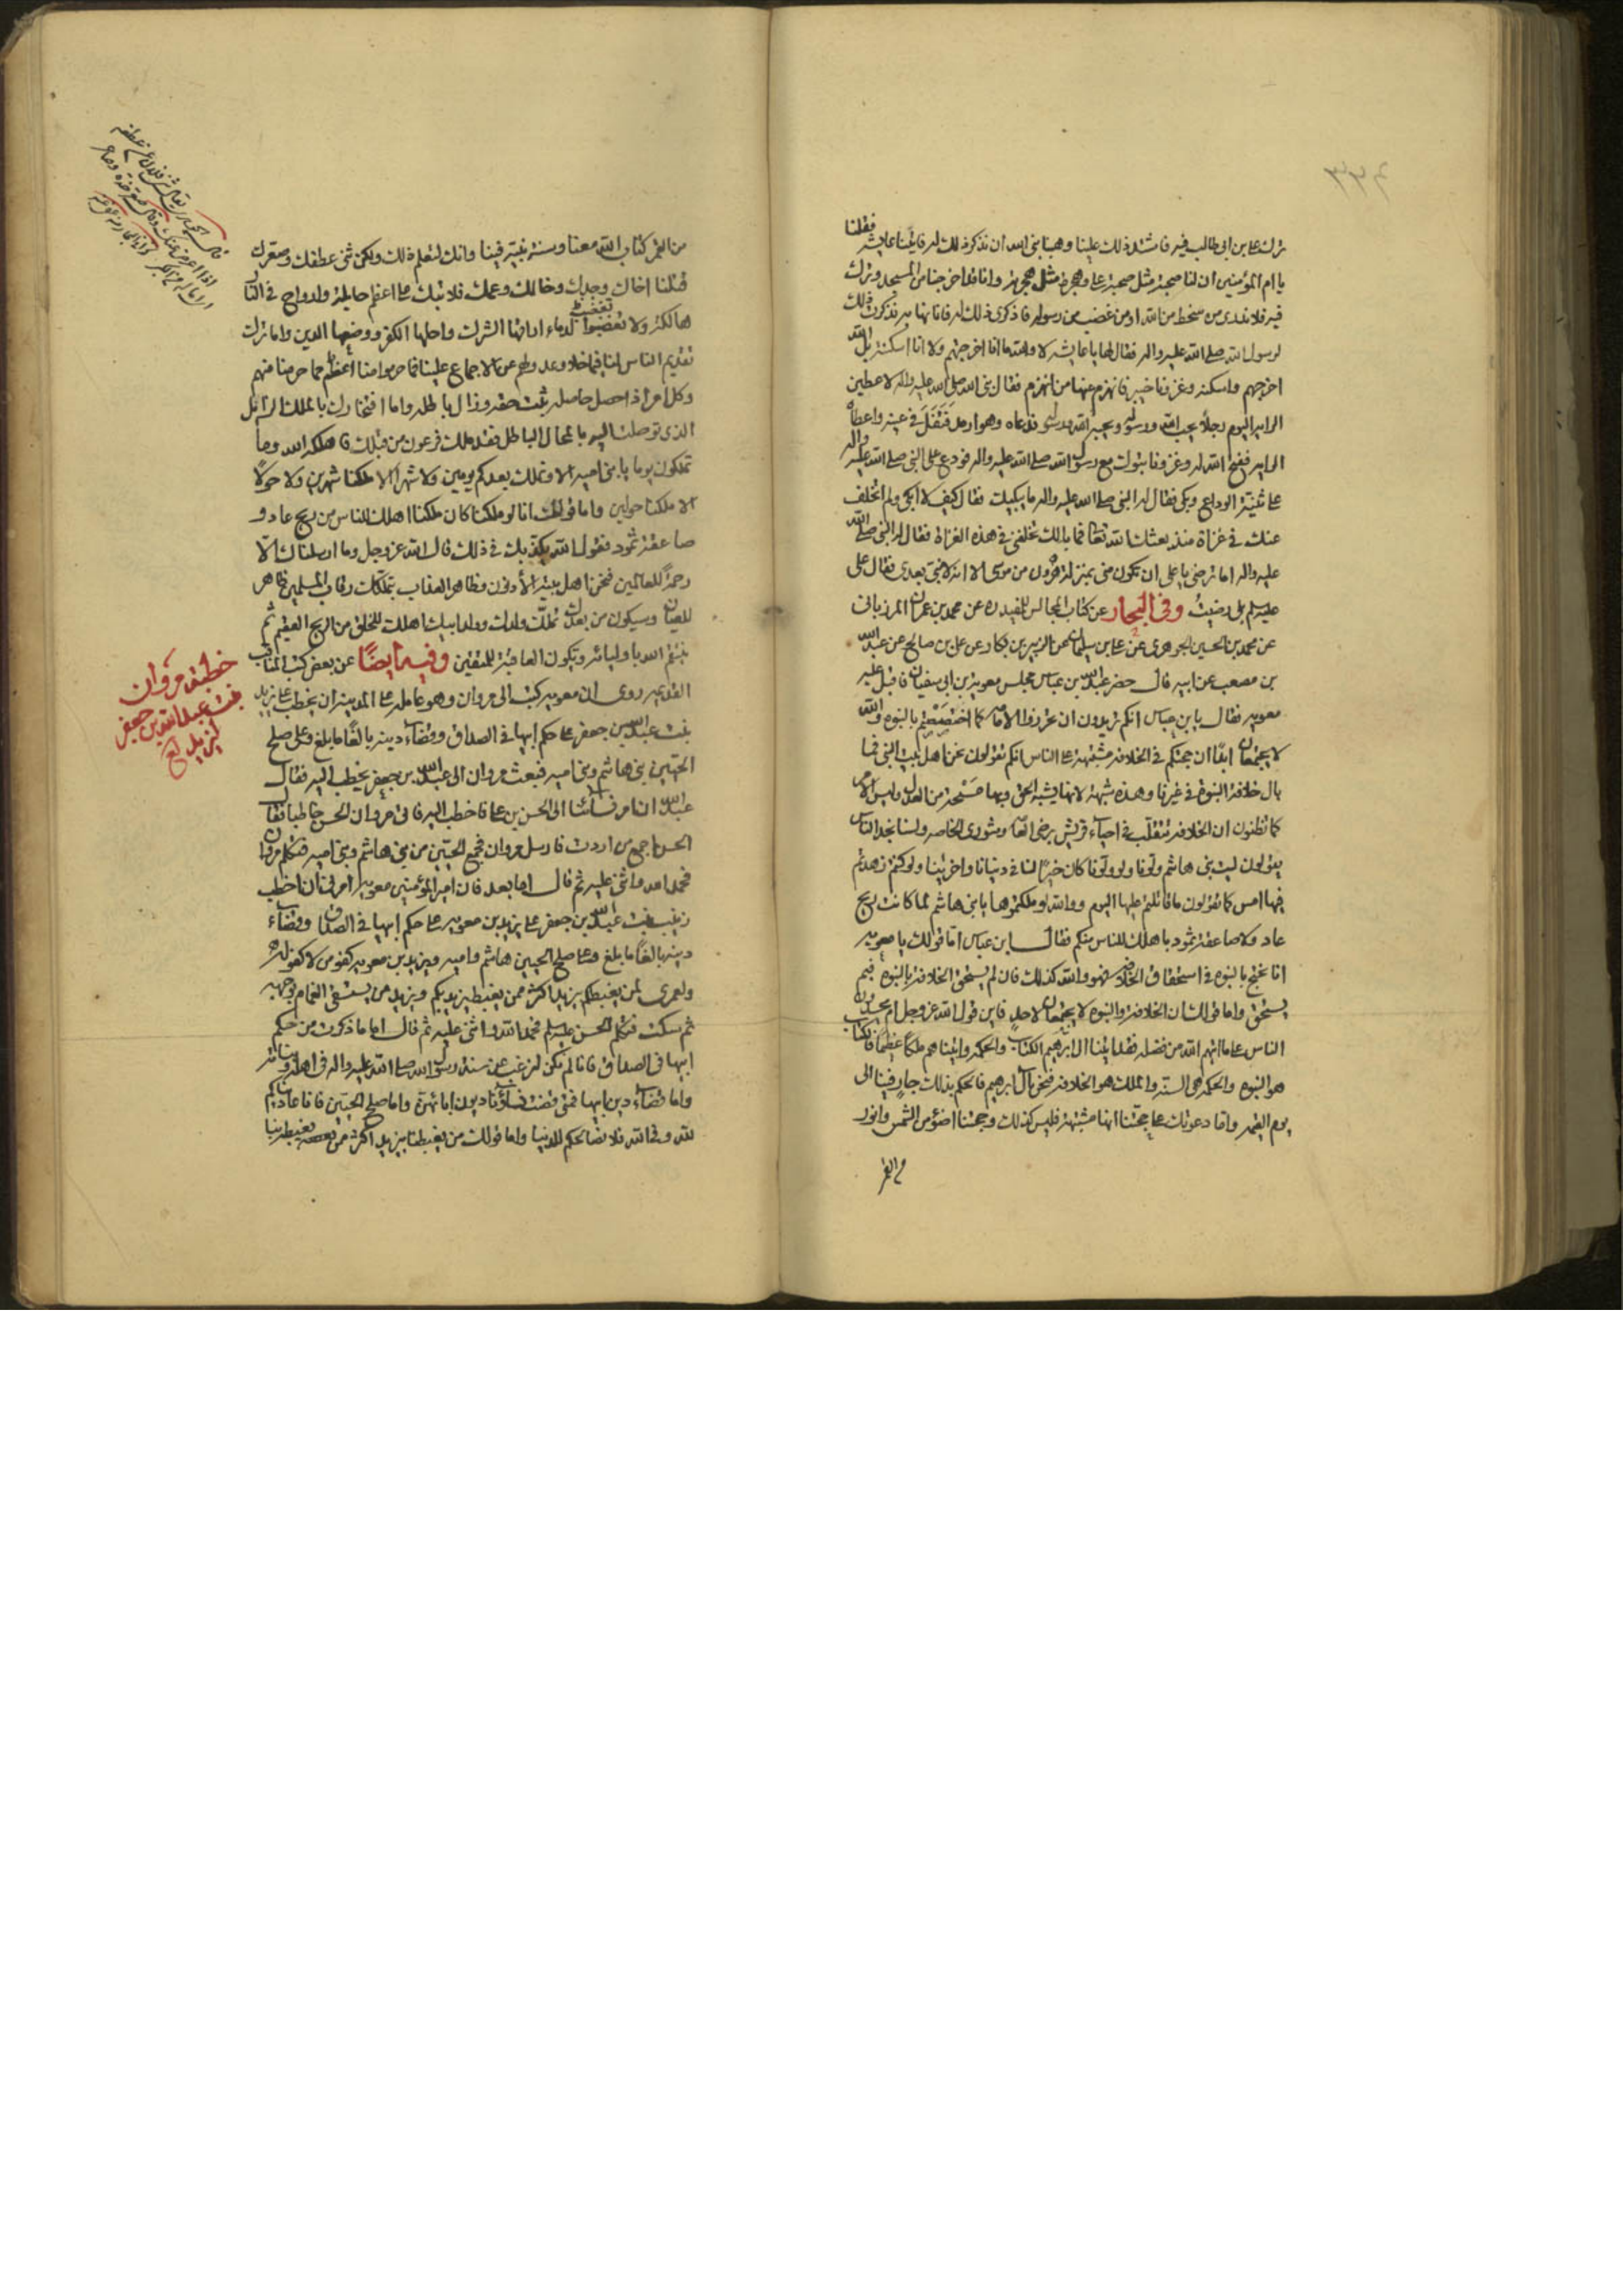 ٣٣٤
ترك علي بن ابي طالب فيه فاشتد ذلك علينا وهبنا نبي الله ان نذكر ذلك له فاتينا عايشه فقلنا
يا ام المؤمنين ان لنا صحبة مثل صحبة علي وهجرة مثل هجرته وانا قد اخرجنا من المسجد وترك
فيه فلا ندري من سخط من الله او من غضب من رسوله فاذكري ذلك له فانا نهابه فذكرت ذلك
لرسول الله صلى الله عليه واله فقال لها يا عايشه لا والله ما انا اخرجتهم ولا انا اسكنته بل الله
اخرجهم واسكنه وغزونا خيبر فانهزم عنها من انهزم فقال نبي الله صلى الله عليه واله لاعطين
الراية اليوم رجلا يحب الله ورسوله ويحبه الله ورسوله فدعاه وهو ارمد فتفل في عينه واعطاه
الراية ففتح الله له وغزونا تبوك مع رسول الله صلى الله عليه واله فودع علي النبي صلى الله عليه واله
على ثنية الوداع وبكى فقال له النبي صلى الله عليه واله ما يبكيك فقال كيف لا ابكي ولم اتخلف
عنك في غزاة منذ بعثك الله تعالى فما بالك تخلفني في هذه الغزاة فقال له النبي صلى الله
عليه واله اما ترضى يا علي ان تكون مني بمنزلة هرون من موسى الا انه لا نبي بعدي فقال علي
عليه السلم بل رضيت وفي البحار عن كتاب المجالس للمفيد ره عن محمد بن عمران المرزباني
عن محمد بن الحسين الجوهري عن علي بن سليمان عن الزبير بن بكار عن علي بن صالح عن عبد الله
بن مصعب عن ابيه قال حضر عبد الله بن عباس مجلس معوية بن ابي سفيان فاقبل عليه
معوية فقال يا بن عباس انكم تريدون ان تحرزوا الامامة كما اختصصتم بالنبوه والله
لا يجتمعان ابدا ان حجتكم في الخلافة مشتبهة على الناس انكم تقولون نحن اهل بيت النبي فما
بال خلافة النبوة في غيرنا وهذه شبهة لانها يشبه الحق وبها مسحة من العدل وليس الامر
كما تظنون ان الخلافة تتقلب في احياء قريش برضى العامة وشورى الخاصه ولسنا نجد الناس
يقولون ليت بني هاشم ولونا ولو ولونا كان خيرا لنا في دنيانا واخرتنا ولو كنتم زهدتم
فيها امس كما تقولون ما قاتلتم عليها اليوم ووالله لو ملكتموها يا بني هاشم لما كانت ريح
عاد ولا صاعقة ثمود باهلك للناس منكم فقال ابن عباس اما قولك يا معوية
انا نحتج بالنبوه في استحقاق الخلافه فهو والله كذلك فان لم يستحق الخلافة بالنبوه فبم
يستحق واما قولك ان الخلافة والنبوه لا يجتمعان لاحد فاين قول الله عز وجل ام يحسدون
الناس على ما اتيهم الله من فضله فقد اتينا ال ابرهيم الكتاب والحكمة واتيناهم ملكا عظيما فالكتاب
هو النبوه والحكمه هي السنه والملك هو الخلافه فنحن ال ابرهيم فالحكم بذلك جار فينا الى
يوم القيمه واما دعوتك على حجتنا انها مشتبهة فليس كذلك وحجتنا اضوء من الشمس وانور
من القمر
من القمر كتاب الله معنا وسنة نبيه فينا وانك لتعلم ذلك ولكن ثنى عطفك وصعرك
قتلنا اخاك وجدك وخالك وعمك فلا تبك على اعظم حايلة وارواح في النار
هالكة ولا تغضبوا لدماء اراقها الشرك واحلها الكفر ووضعها الدين واما ترك
تقديم الناس لنا فيما خلا وعدولهم عن الاجماع علينا فما حرموا منا اعظم مما حرمنا منهم
وكل امر اذا حصل حاصله ثبت حقه وزال باطله واما افتخارك بالملك الزائل
الذي توصلت اليه بالمحال الباطل فقد ملك فرعون من قبلك فاهلكه الله وما
تملكون يوما يا بني اميه الا ونملك بعدكم يومين ولا شهرا الا ملكنا شهرين ولا حولا
الا ملكنا حولين واما قولك انا لو ملكنا كان ملكنا اهلك للناس من ريح عاد و
صاعقة ثمود فقول الله يكذبك في ذلك قال الله عز وجل وما ارسلناك الا
رحمة للعالمين فنحن اهل بيته الأدنون وظاهر العذاب بتملكك رقاب المسلمين ظاهر
للعيان وسيكون من بعدك تملك ولدك وولد ابيك اهلك للخلق من الريح العقيم ثم
ينتقم الله باوليائه وتكون العاقبة للمتقين وفيه ايضا عن بعض كتب المناقب
القديمه روى ان معويه كتب الى مروان وهو عامله على المدينه ان يخطب على يزيد
بنت عبد الله بن جعفر على حكم ابيها في الصداق وقضاء دينه بالغا ما بلغ وعلى صلح
الحيين بني هاشم وبني اميه فبعث مروان الى عبد الله بن جعفر يخطب اليه فقال
عبد الله ان امر نسائنا الى الحسن بن علي فاخطب اليه فاتى مروان الحسن خاطبا فقال
الحسن اجمع من اردت فارسل مروان فجمع الحيين من بني هاشم وبني اميه فتكلم مروان
فحمد الله واثنى عليه ثم قال اما بعد فان امير المؤمنين معويه امرني ان اخطب
زينب بنت عبد الله بن جعفر على يزيد بن معويه على حكم ابيها في الصداق وقضاء
دينه بالغا ما بلغ وعلى صلح الحيين هاشم واميه ويزيد بن معويه كفو من لا كفو له
ولعمري لمن يغبطكم بيزيد اكثر ممن يغبط يزيد بكم ويزيد من يستسقى الغمام بوجهه
ثم سكت فتكلم الحسن عليه السلم فحمد الله واثنى عليه ثم قال اما ما ذكرت من حكم
ابيها في الصداق فانا لم نكن لنرغب عن سنة رسول الله صلى الله عليه واله في اهله وبناته
واما قضاء دين ابيها فمتى قضت نساؤنا ديون ابائهن واما صلح الحيين فانا عاديناكم
لله وفي الله فلا نصالحكم للدنيا واما قولك من يغبطنا بيزيد اكثر ممن يغبطه بنا
خطبة مروان
بنت عبد الله بن جعفر
ليزيد لع